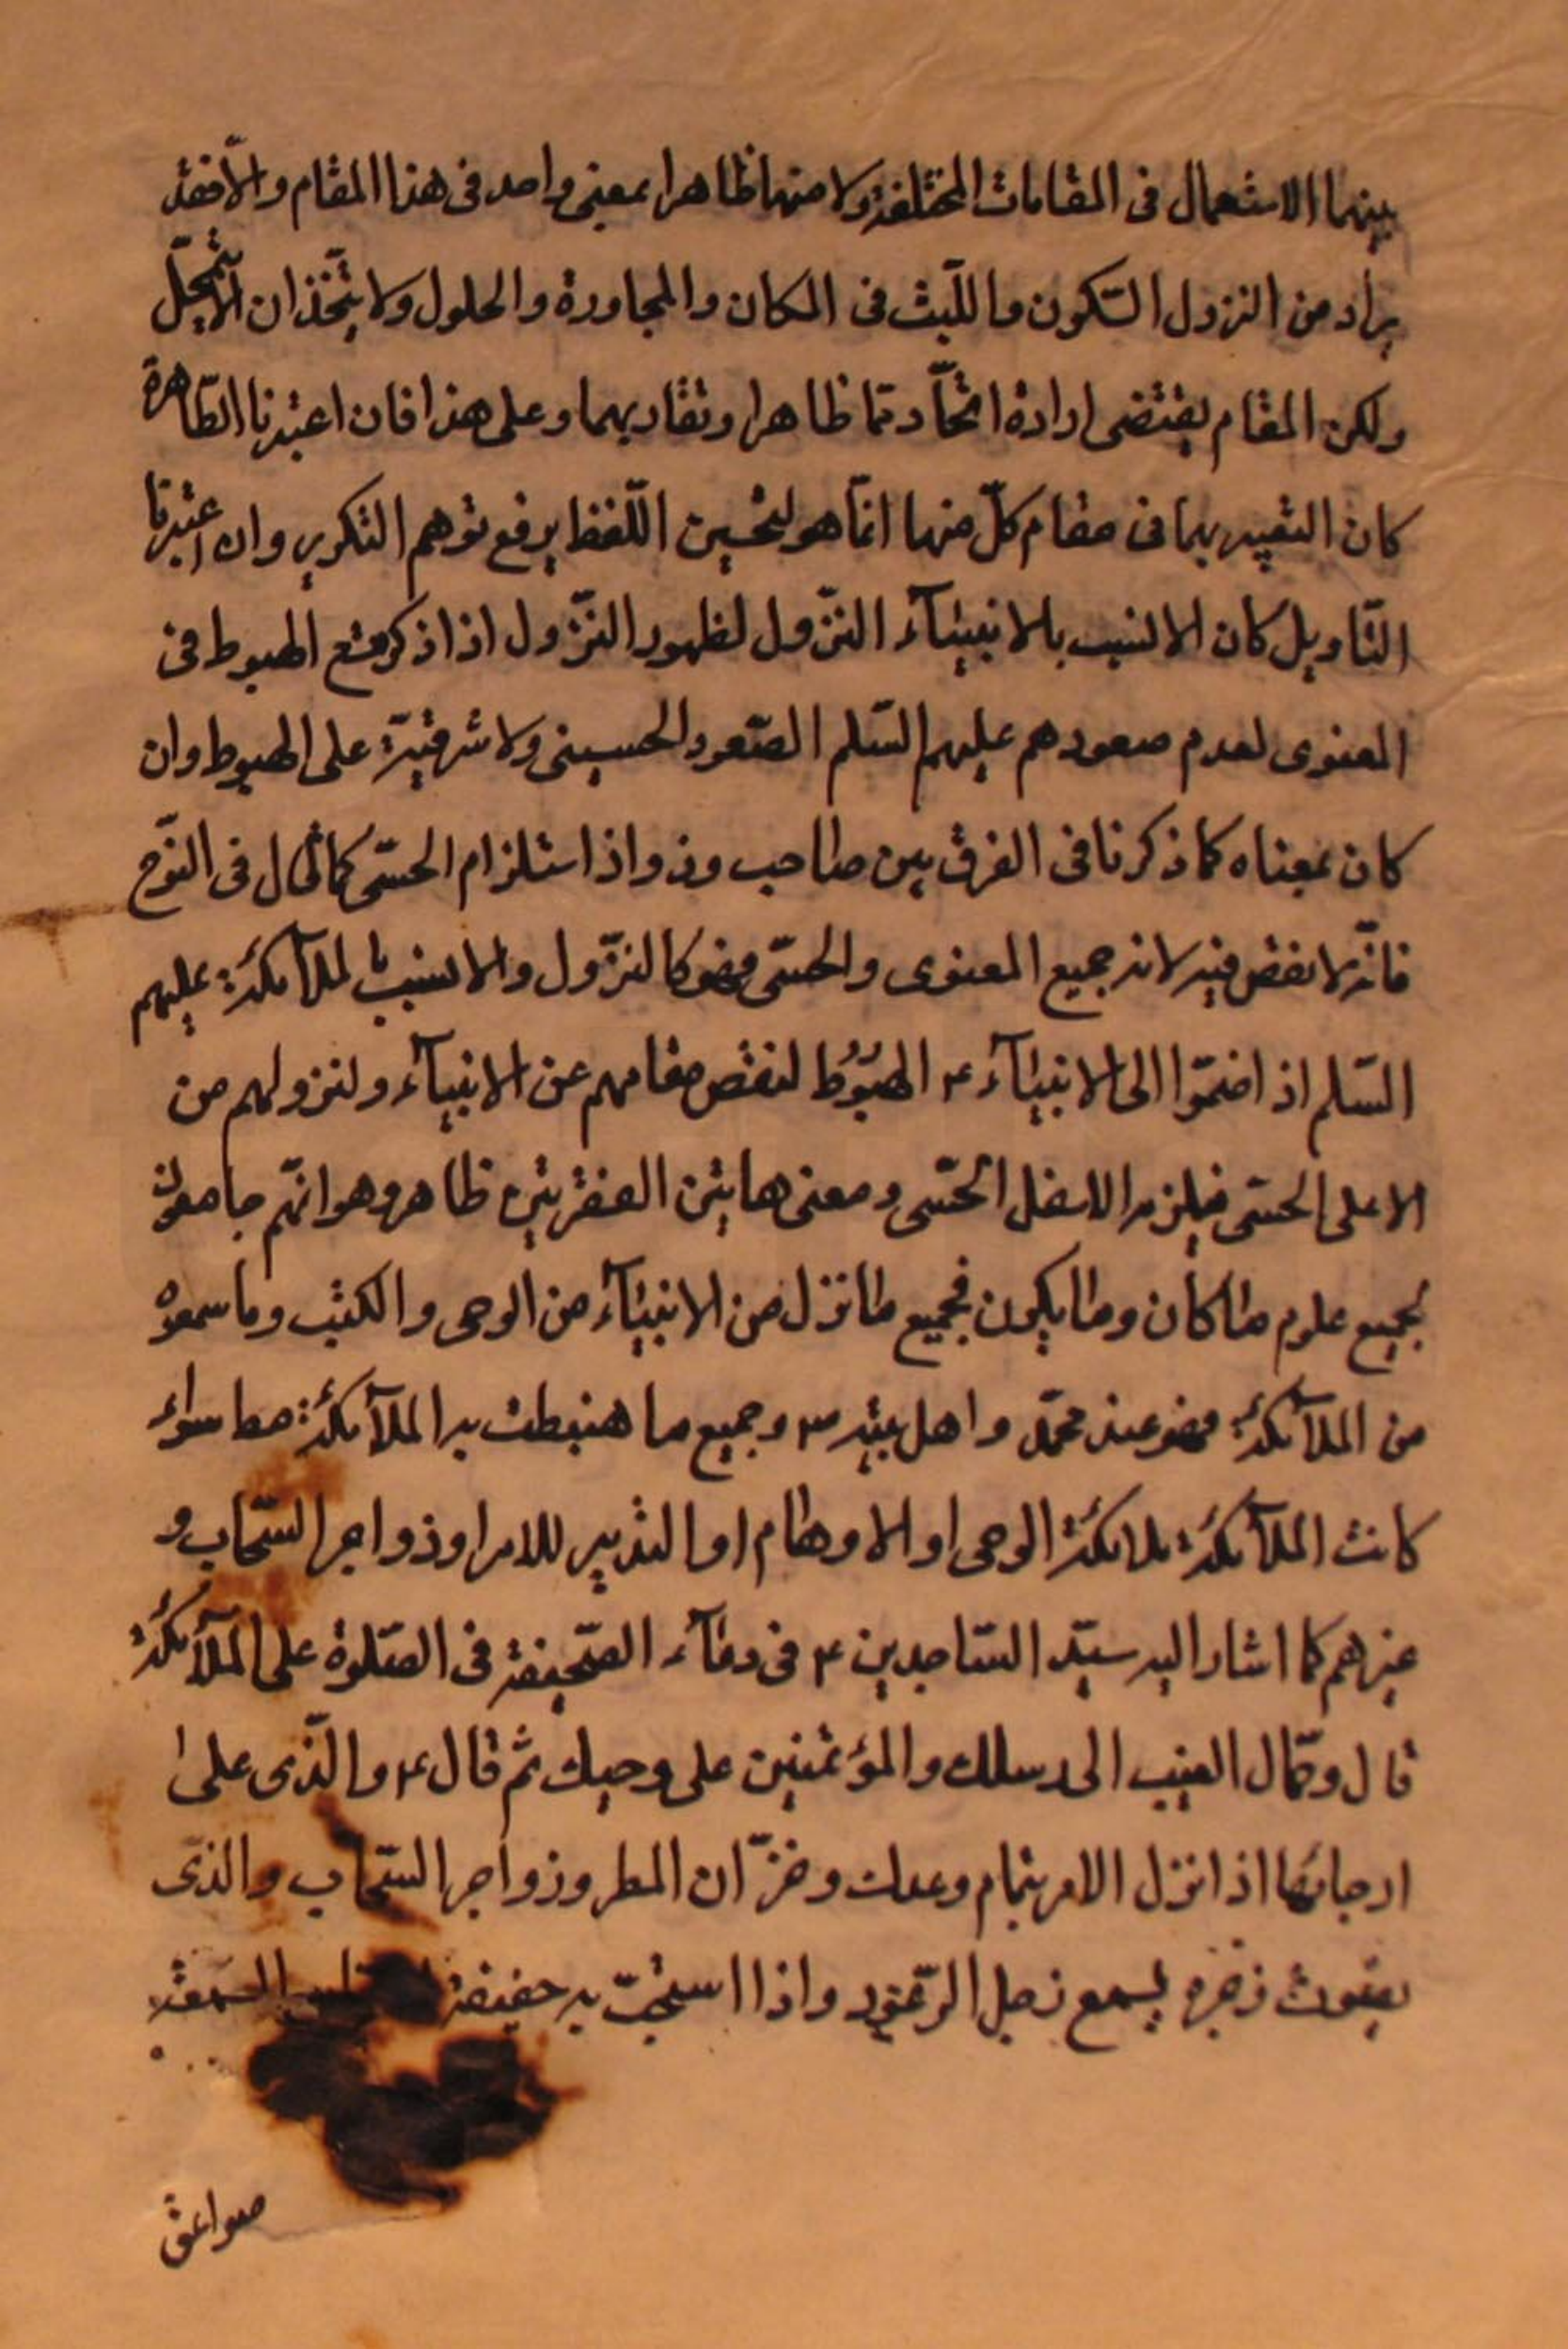 بينهما الاستعمال فى المقامات المختلفة ولا منهما ظاهرا بمعنى واحد فى هذا المقام والّا فقد
يراد من النزول السّكون واللّبث فى المكان والمجاورة والحلول ولا يتّخذان الّا بتمحّل
ولكن المقام يقتضى ارادة اتّحاد تما ظاهرا وتقاربهما وعلى هذا فان اعتبرنا الظّاهرة
كان التعبير بهما فى مقام كلّ منهما انّما هو لتحسين اللّفظ يرفع توهم التكرير وان اعتبرنا
التّاويل كان الانسب بالانبيآء النزّول لظهور النزّول اذا ذكر مع الهبوط فى
المعنوى لعدم صعودهم عليهم السّلم الصّعود الحسينى ولاشرفيّة على الهبوط وان
كان بمعناه كما ذكرنا فى الفرق بين صاحب وذو اذ استلزام الحسّى كما قال فى النوّح
فانّه لا نقص فيه لانه جميع المعنوى والحسّى فهو كالنزّول والانسب بالملآئكة عليهم
السّلم اذ اضمّوا الى الانبيآء ع الهبُوُط لنقص مقامهم عن الانبيآء ولنزولهم من
الاعلى الحسّى فيلزمه الاسفل الحسّى ومعنى هاتين الفقرتين ظاهر وهو انّهم جامعون
لجميع علوم ما كان وما يكون فجميع ما نزل من الانبيآء من الوحى والكتب وما سمعوه
من الملآئكة فهو عند محمّد واهل بيته ص وجميع ما هنبطت به الملآئكة مما سواء
كانت الملآئكة ملائكة الوحى او الاوهام او التدبير للامر او زواجر السّحاب و
غيرهم كما اشار اليه سيّد السّاجدين ع فى دعآء الصّحيفة فى الصّلوة على الملآئكة
قال وحمّال الغيب الى رسلك والمؤتمنين على وحيك ثم قال ع والّذى على
ارجائها اذا نزل الامر بتمام وعدك وخزّان المطر وزواجر السّحاب والذى
بصوت زجره يسمع زجل الرّعود واذا اسبحّت به حفيفة
صواعق